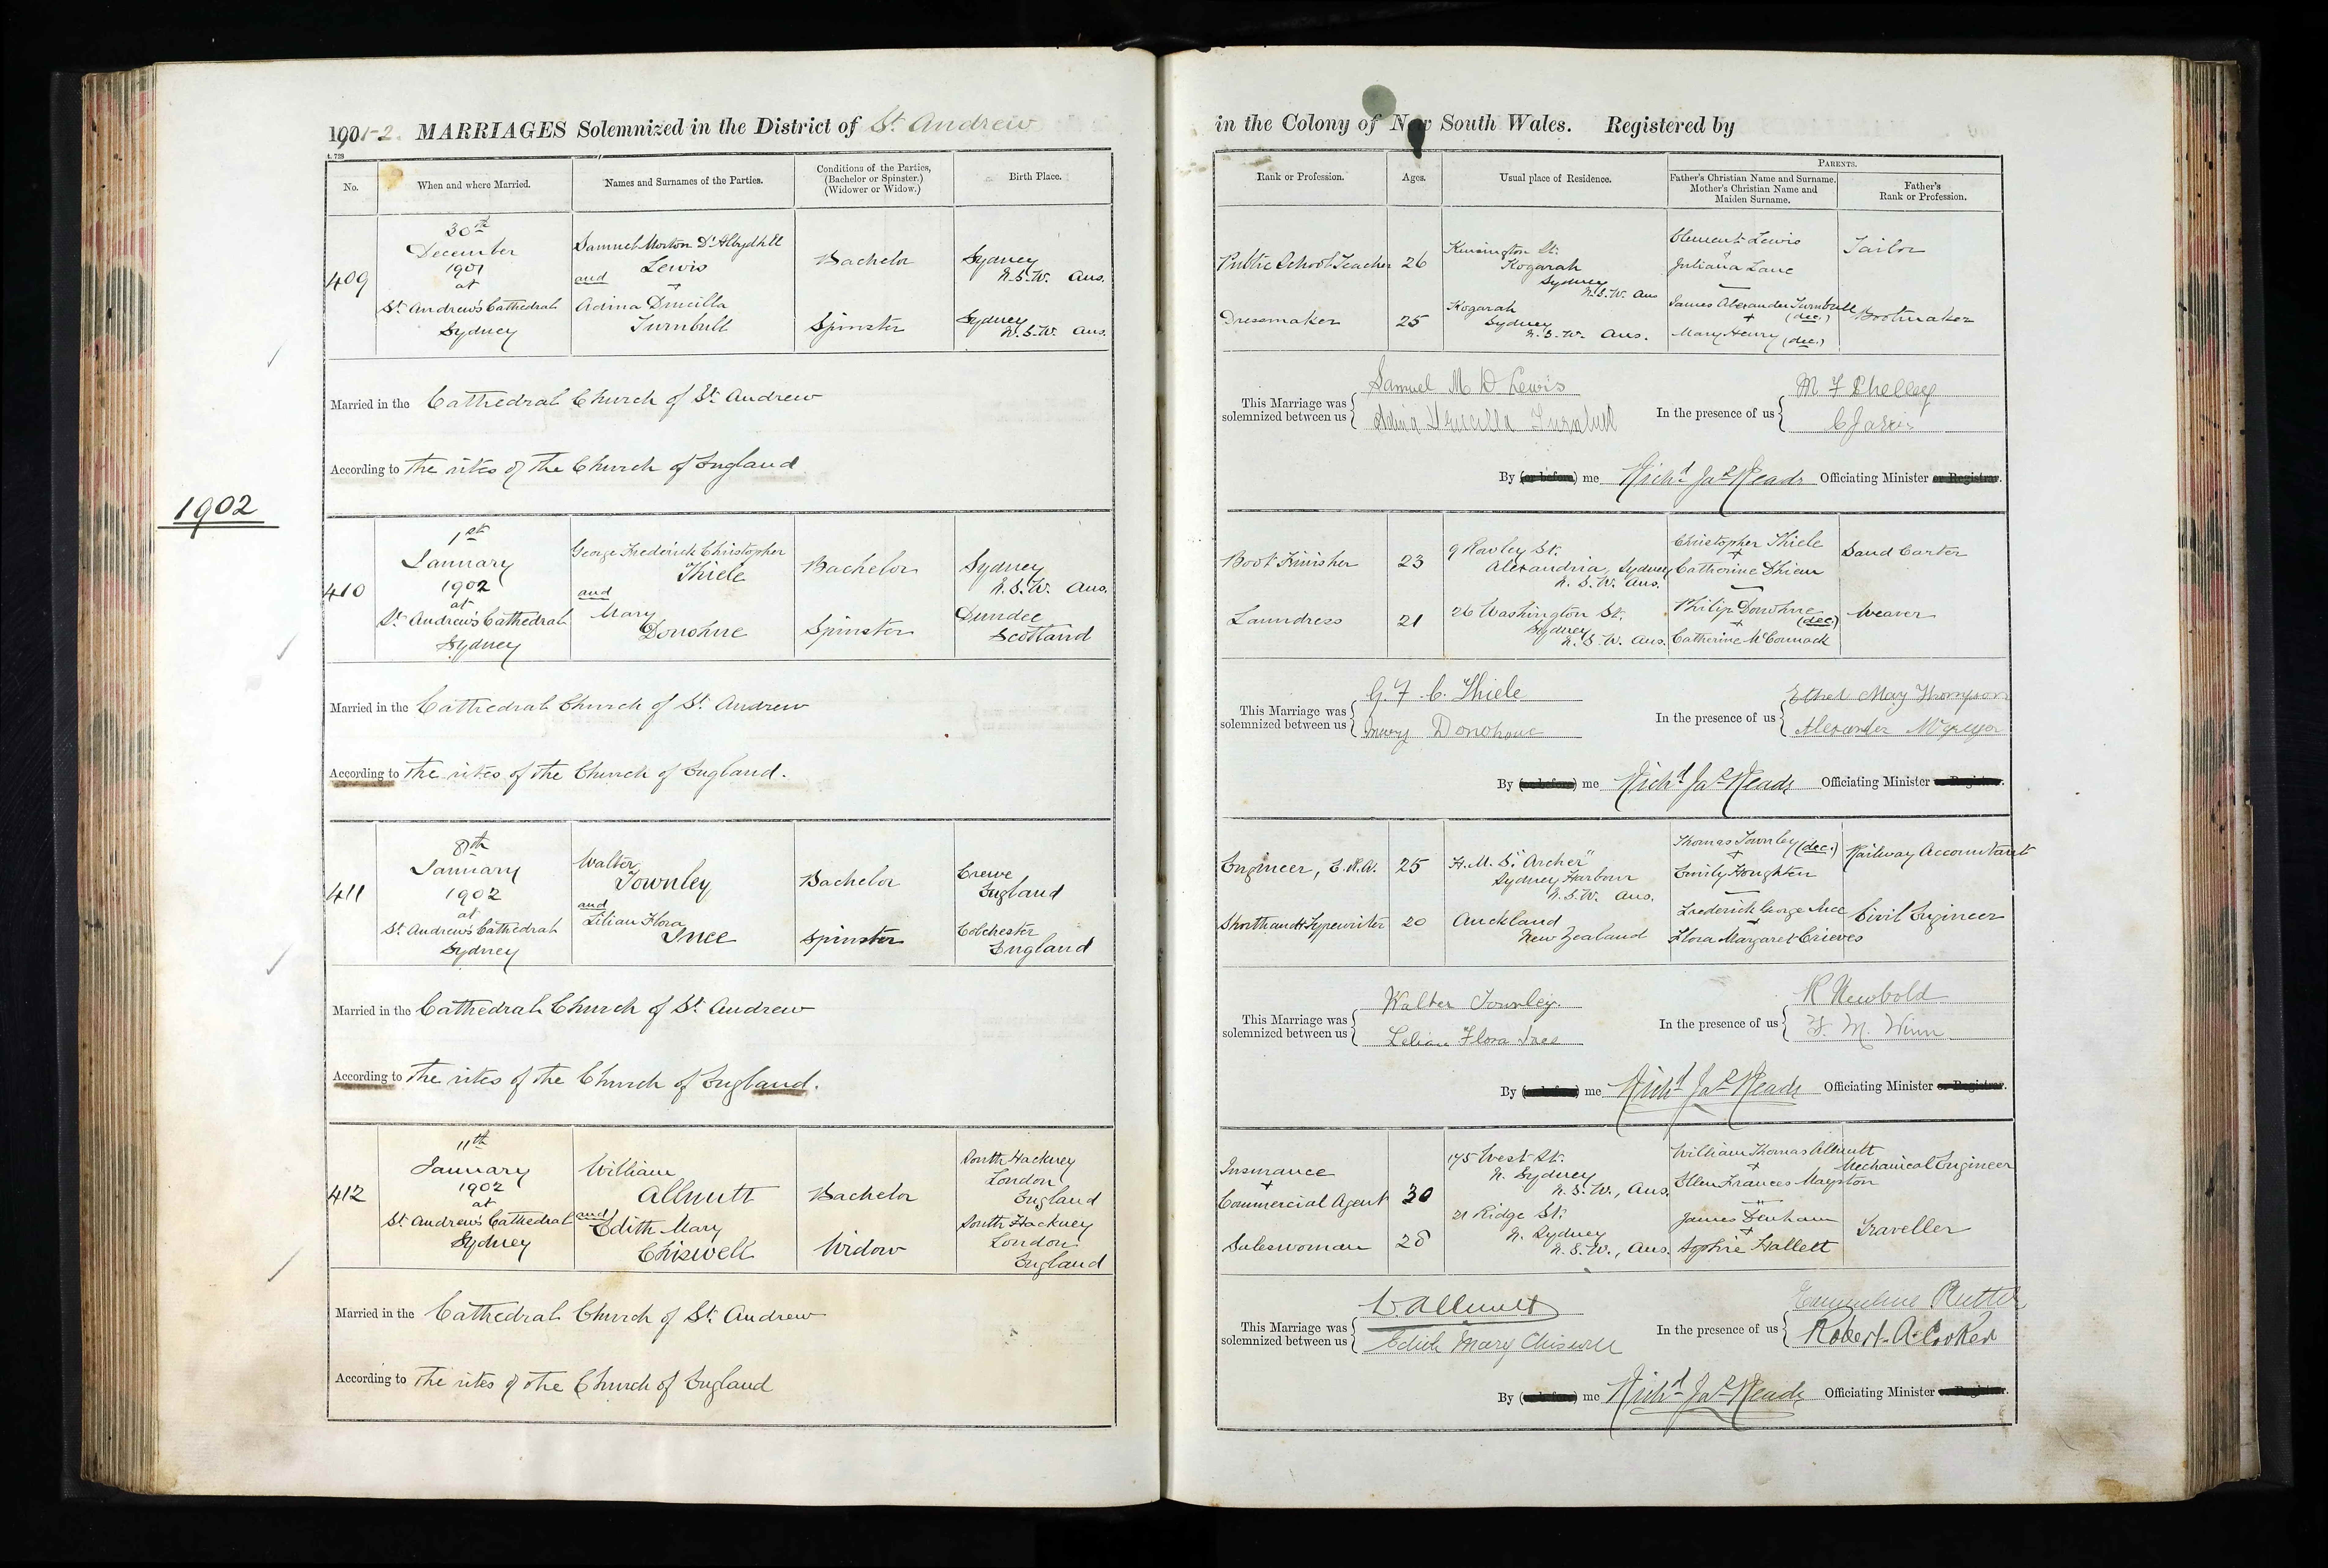 1901-2. MARRIAGES Solemnized in the District of St. Andrew
No.
When and where Married.
Names and Surnames of the Parties.
Conditions of the Parties,
(Bachelor or Spinster.)
(Widower or Widow.)
Birth Place.
409
30th
December
1901
at
St. Andrew's Cathedral
Sydney
Samuel Morton
Lewis
and
Adina Drucilla
Turnbull
Bachelor
Spinster
Sydney
N.S.W. Aus.
Sydney
N.S.W. Aus.
Married in the Cathedral Church of St. Andrew
According to the rites of the Church of England
1902
410
1st
January
1902
at
St. Andrew's Cathedral
Sydney
George Frederick Christopher
Thiele
and
Mary
Donohue
Bachelor
Spinster
Sydney
N.S.W. Aus.
Dundee
Scotland
Married in the Cathedral Church of St. Andrew
According to the rites of the Church of England.
411
8th
January
1902
at
St. Andrew's Cathedral
Sydney
Walter
Townley
and
Lilian Flora
Ince
Bachelor
Spinster
Crewe
England
Colchester
England
Married in the Cathedral Church of St. Andrew
According to the rites of the Church of England.
412
11th
January
1902
at
St. Andrew's Cathedral
Sydney
William
Allnutt
and
Edith Mary
Chiswell
Bachelor
Widow
South Hackney
London
England
South Hackney
London
England
Married in the Cathedral Church of St. Andrew
According to the rites of the Church of England
in the Colony of New South Wales. Registered by
Rank or Profession.
Ages.
Usual place of Residence.
PARENTS.
Father's Christian Name and Surname.
Mother's Christian Name and
Maiden Surname.
Father's
Rank or Profession.
Public School Teacher
26
Kensington St.
Kogarah
Sydney
N.S.W. Aus
Clement Lewis
+
Juliana Lane
Tailor
Dressmaker
25
Kogarah
Sydney
N.S.W. Aus.
James Alexander Turnbull
(dec.)
+
Mary Henry (dec.)
Bootmaker
This Marriage was
solemnized between us
Samuel M D Lewis
Adina Drucilla Turnbull
In the presence of us
M F
C Jarvis
By (or before) me Richd. Jas. Read, Officiating Minister or Registrar.
Boot Finisher
23
9 Rowley St.
Alexandria, Sydney
N.S.W. Aus.
Christopher Thiele
+
Catherine
Sand Carter
Laundress
21
26 Washington St.
Sydney
N.S.W. Aus.
Philip Donohue
(dec.)
+
Catherine McCormack
Weaver
This Marriage was
solemnized between us
G. F. C. Thiele
Mary Donohoue
In the presence of us
Ethel May Thompson
Alexander McGregor
By (or before) me Richd. Jas. Read, Officiating Minister or Registrar.
Engineer, E.R.A.
25
H.M.S. "Archer"
Sydney Harbour
N.S.W. Aus.
Thomas Townley (dec.)
+
Emily Houghton
Railway Accountant
Shorthand & Typewriter
20
Auckland
New Zealand
Frederick George Ince
+
Flora Margaret Crieves
Civil Engineer
This Marriage was
solemnized between us
Walter Townley.
Lilian Flora Ince
In the presence of us
R Newbold
F. M. Winn
By (or before) me Richd. Jas. Read, Officiating Minister or Registrar.
Insurance
+
Commercial Agent
30
175 West St.
N. Sydney
N.S.W., Aus.
William Thomas Allnutt
+
Ellen Frances Mayston
Mechanical Engineer
Saleswoman
28
21 Ridge St.
N. Sydney
N.S.W., Aus.
James Denham
+
Sophie Hallett
Traveller
This Marriage was
solemnized between us
W. Allnutt
Edith Mary Chiswell
In the presence of us
Rutter
Robert A. Cooker
By (or before) me Richd. Jas. Read, Officiating Minister or Registrar.